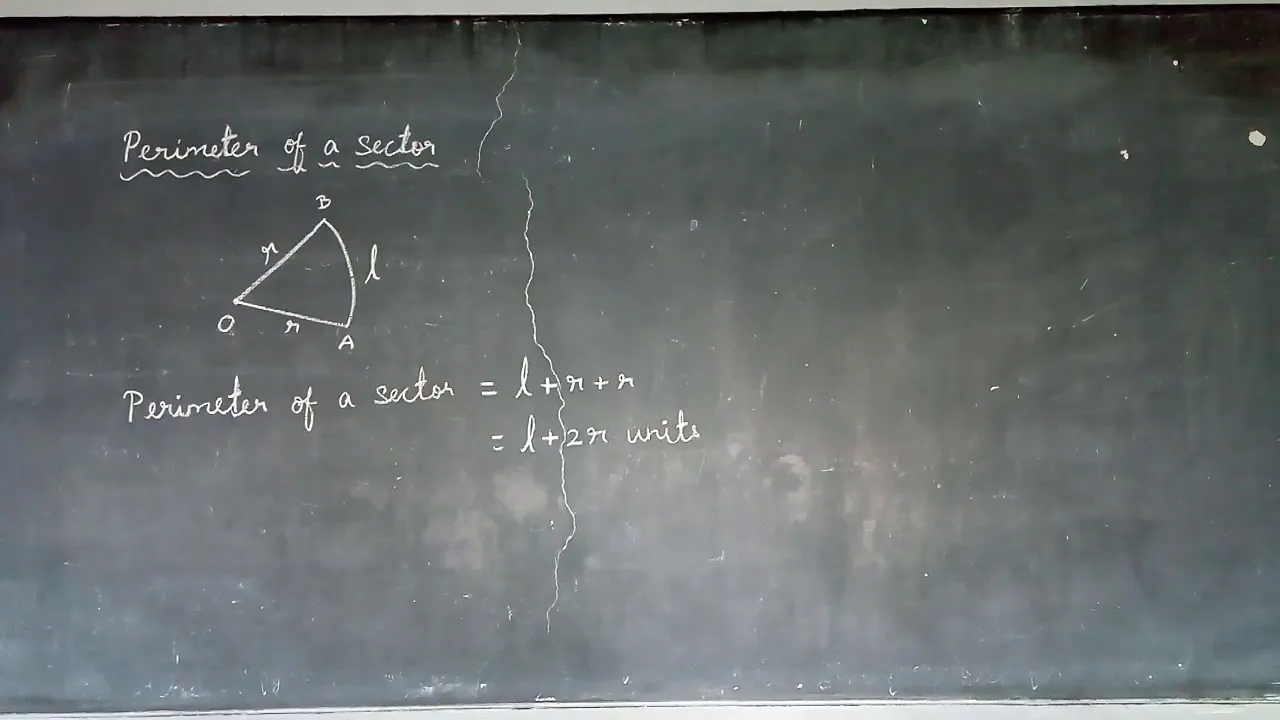 Perimeter of a sector
B
r
l
O
r
A
Perimeter of a sector = l + r + r
= l + 2r units